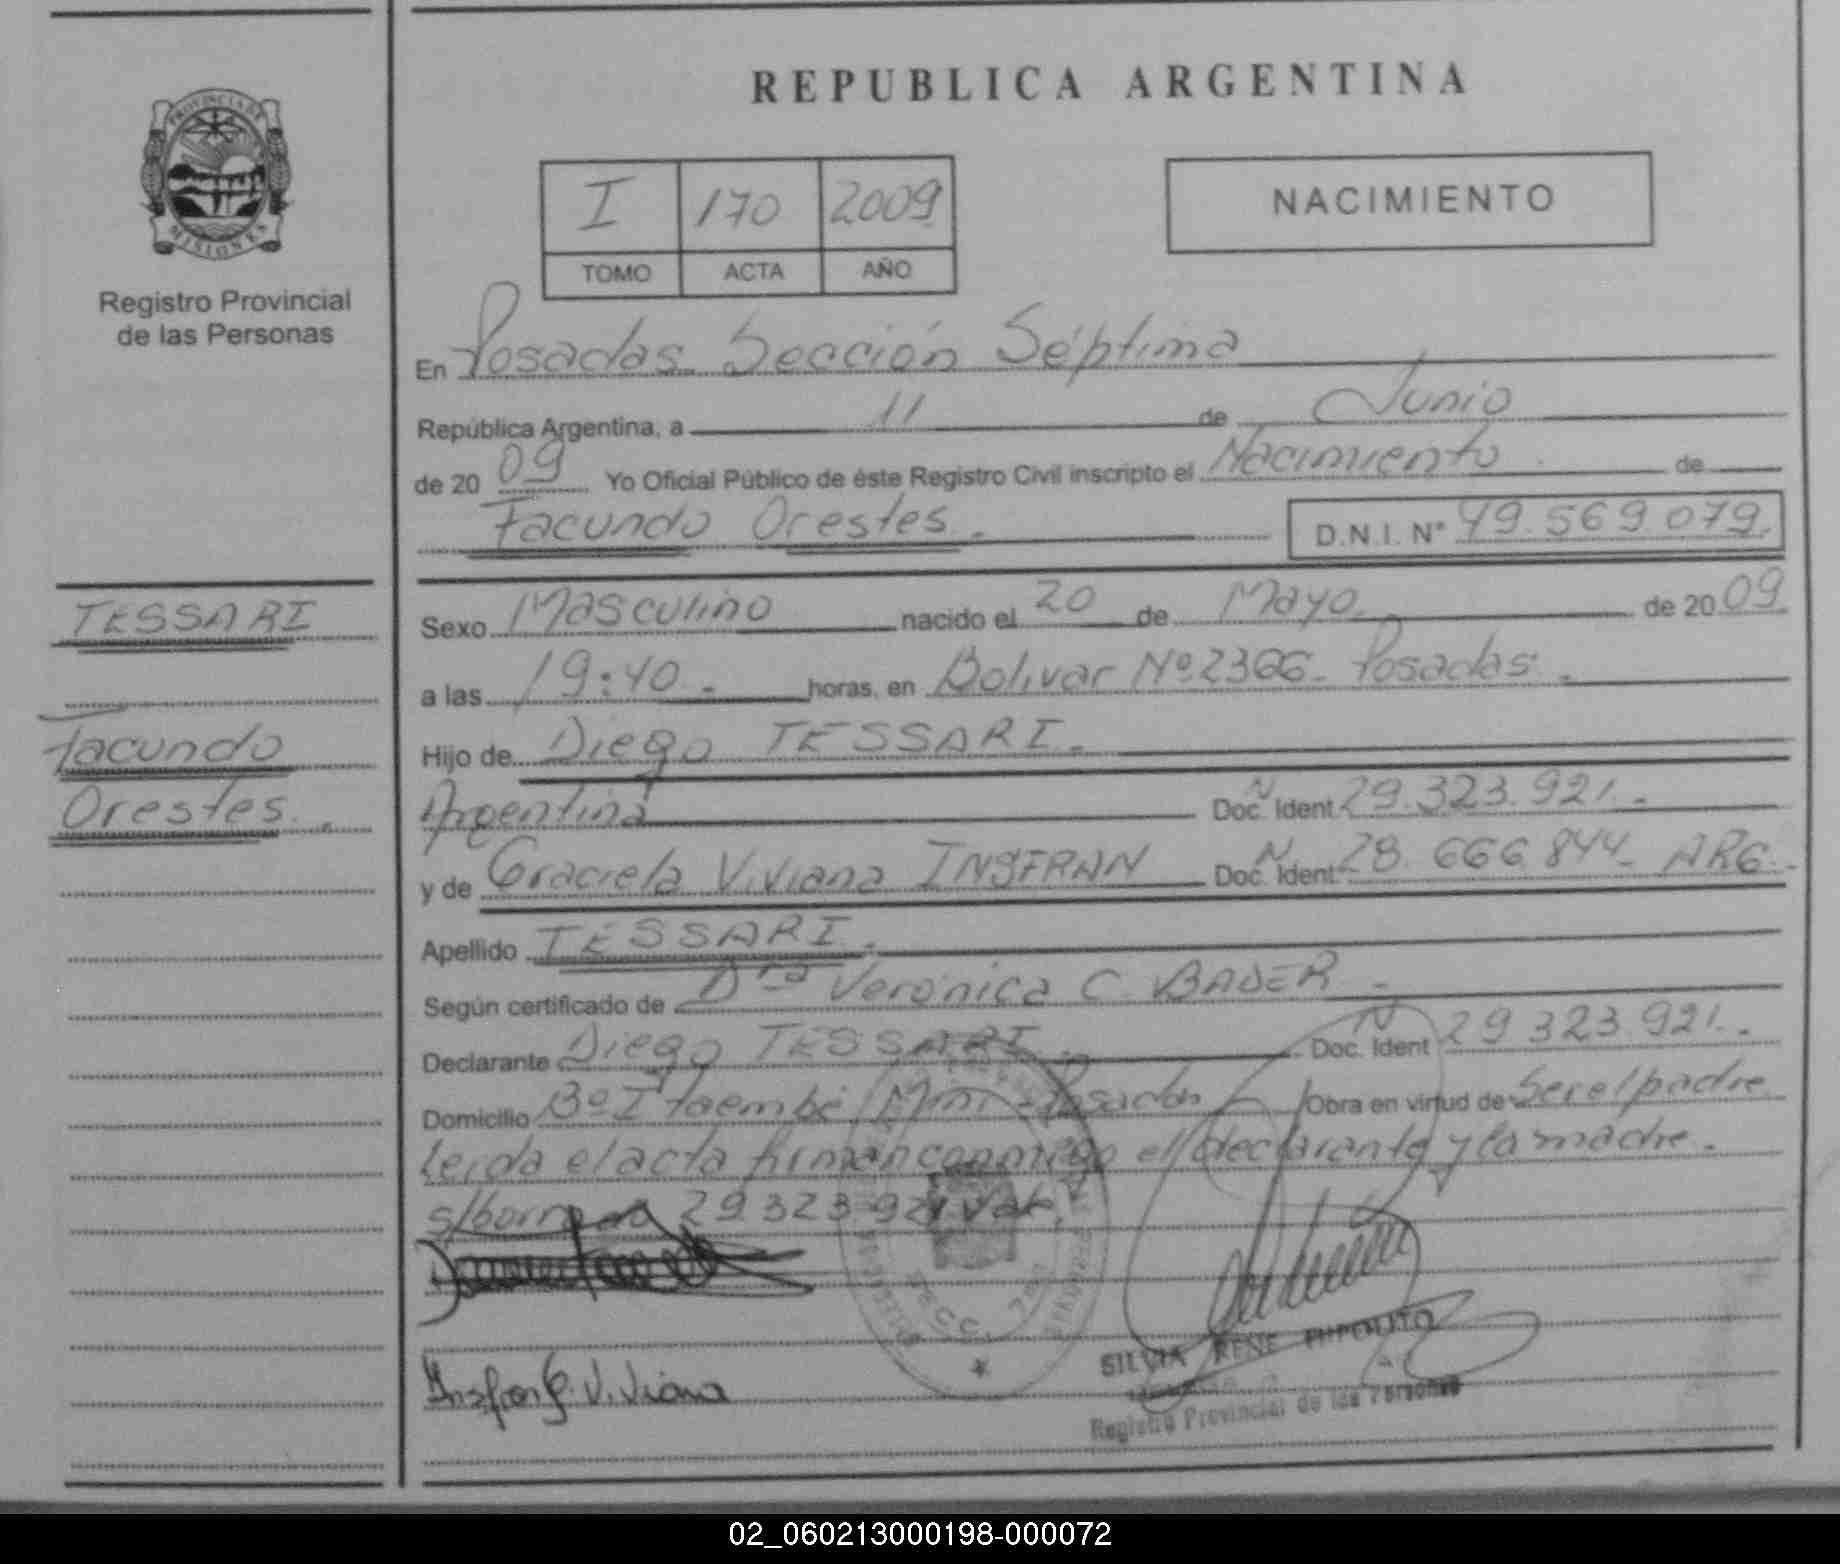 REPUBLICA ARGENTINA
PROVINCIA DE
MISIONES
Registro Provincial
de las Personas
I 170 2009
TOMO ACTA AÑO
NACIMIENTO
En Posadas Sección Séptima
República Argentina, a 11 de Junio
de 20 09 Yo Oficial Público de éste Registro Civil inscripto el Nacimiento de
Facundo Orestes. D.N.I. N° 49.569.079.
TESSARI
Facundo
Orestes.
Sexo Masculino nacido el 20 de Mayo de 20 09
a las 19:40. horas, en Bolívar Nº 2366. Posadas.
Hijo de Diego TESSARI.
Argentina Doc. N Ident. 29.323.921.
y de Graciela Viviana INSFRAN Doc. N Ident. 28.666.844. ARG.
Apellido TESSARI.
Según certificado de Dra Verónica C. BADER.
Declarante Diego TESSARI. Doc. N Ident 29.323.921.
Domicilio Bº Itaembé Miní - Posadas Obra en virtud de Ser el padre
Leída el acta firman conmigo el declarante y la madre.
s/borrado 29.323.921. Vale.
Insfran G. Viviana
SECC. 7
SILVIA RENE HIPOLITO
Registro Provincial de las Personas
02_060213000198-000072